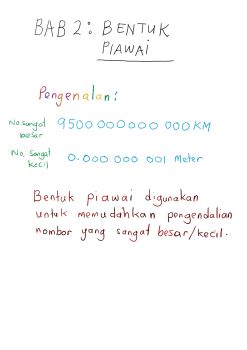 BAB 2: BENTUK
PIAWAI
Pengenalan:
No. sangat besar 9500 000 000 000 KM
No. sangat kecil 0.000 000 001 Meter
Bentuk piawai digunakan
untuk memudahkan pengendalian
nombor yang sangat besar/kecil.